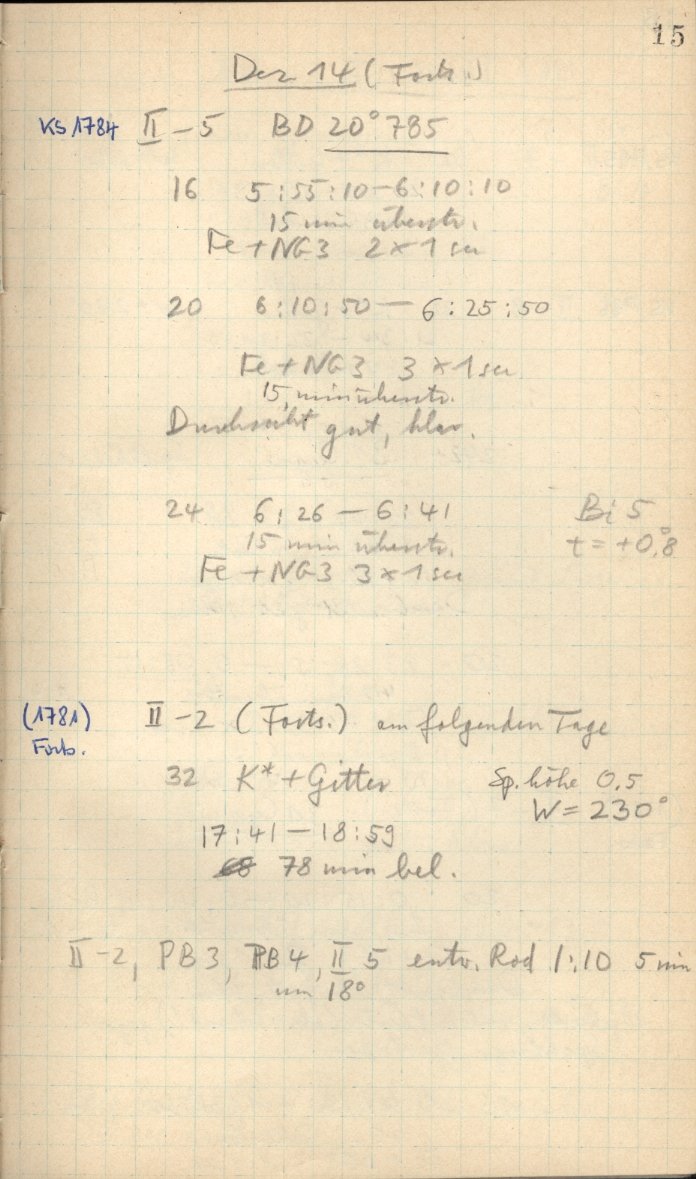 15
Dez 14 (Forts.)
KS 1784 II-5 BD 20° 785
16 5:55:10 - 6:10:10
15 min überstr.
Fe + NG3 2 x 1 sec
20 6:10:50 - 6:25:50
Fe + NG3 3 x 1 sec
15 min überstr.
Durchsicht gut, klar.
24 6:26 - 6:41 Bi 5
15 min überstr. t = +0°,8
Fe + NG3 3 x 1 sec
(1781) II-2 (Forts.) am folgenden Tage
Forts.
32 K* + Gitter Sp. höhe 0.5
W = 230°
17:41 - 18:59
68 78 min bel.
II-2, PB3, PB4, II 5 entw. Rod 1:10 5 min
18°